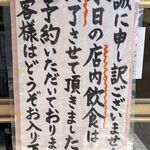 誠に申し訳ございませ
本日の店内飲食は
了させて頂きました
予約いただいておりま
客様はどうぞお入り下